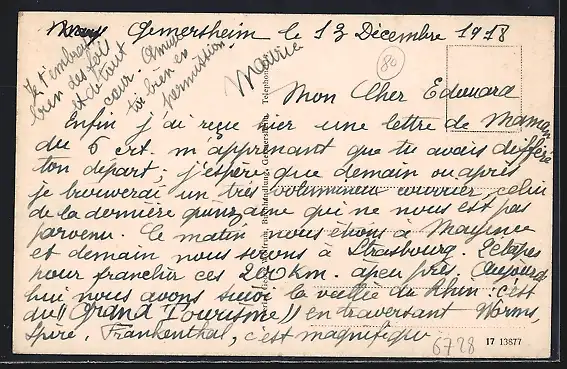 Germersheim le 13 Décembre 1918
Je t'embrasse
bien des fois
et de tout
cœur Amuse
toi bien en
permission.
Maurice
80
Mon Cher Edouard
Enfin j'ai reçu hier une lettre de Maman
du 5 crt. m'apprenant que tu avais différé
ton départ; j'espère que demain ou après
je trouverai un très volumineux courrier, celui
de la dernière quinzaine qui ne nous est pas
parvenu. Ce matin nous étions à Mayence
et demain nous serons à Strasbourg. 2 étapes
pour franchir ces 200 km. a peu près. Aujourd
hui nous avons suivi la vallée du Rhin: c'est
du "Grand Tourisme" en traversant Worms,
Spire, Frankenthal, c'est magnifique
6728
17 13877
Buchhandlung, Germersheim. Telephon